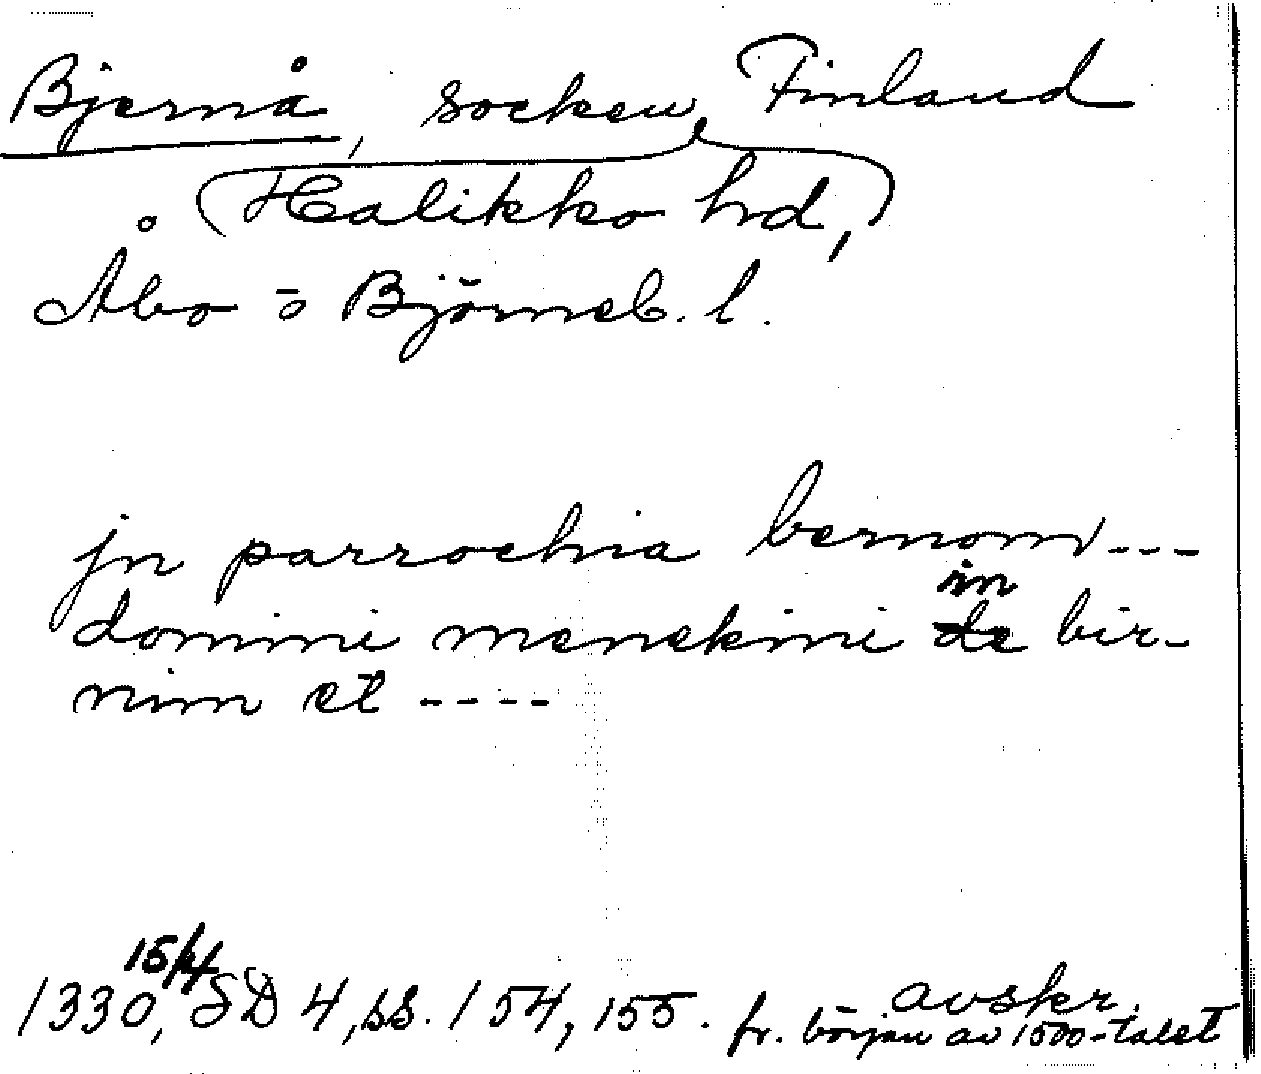 Bjernå, socken, Finland
(Halikko hrd,)
Åbo o Björneb. l.
jn parrochia bernom ---
domini menekini in bir-
nim et ----
1330, 15/4 SD 4, ss. 154, 155. avskr.
fr. början av 1500-talet